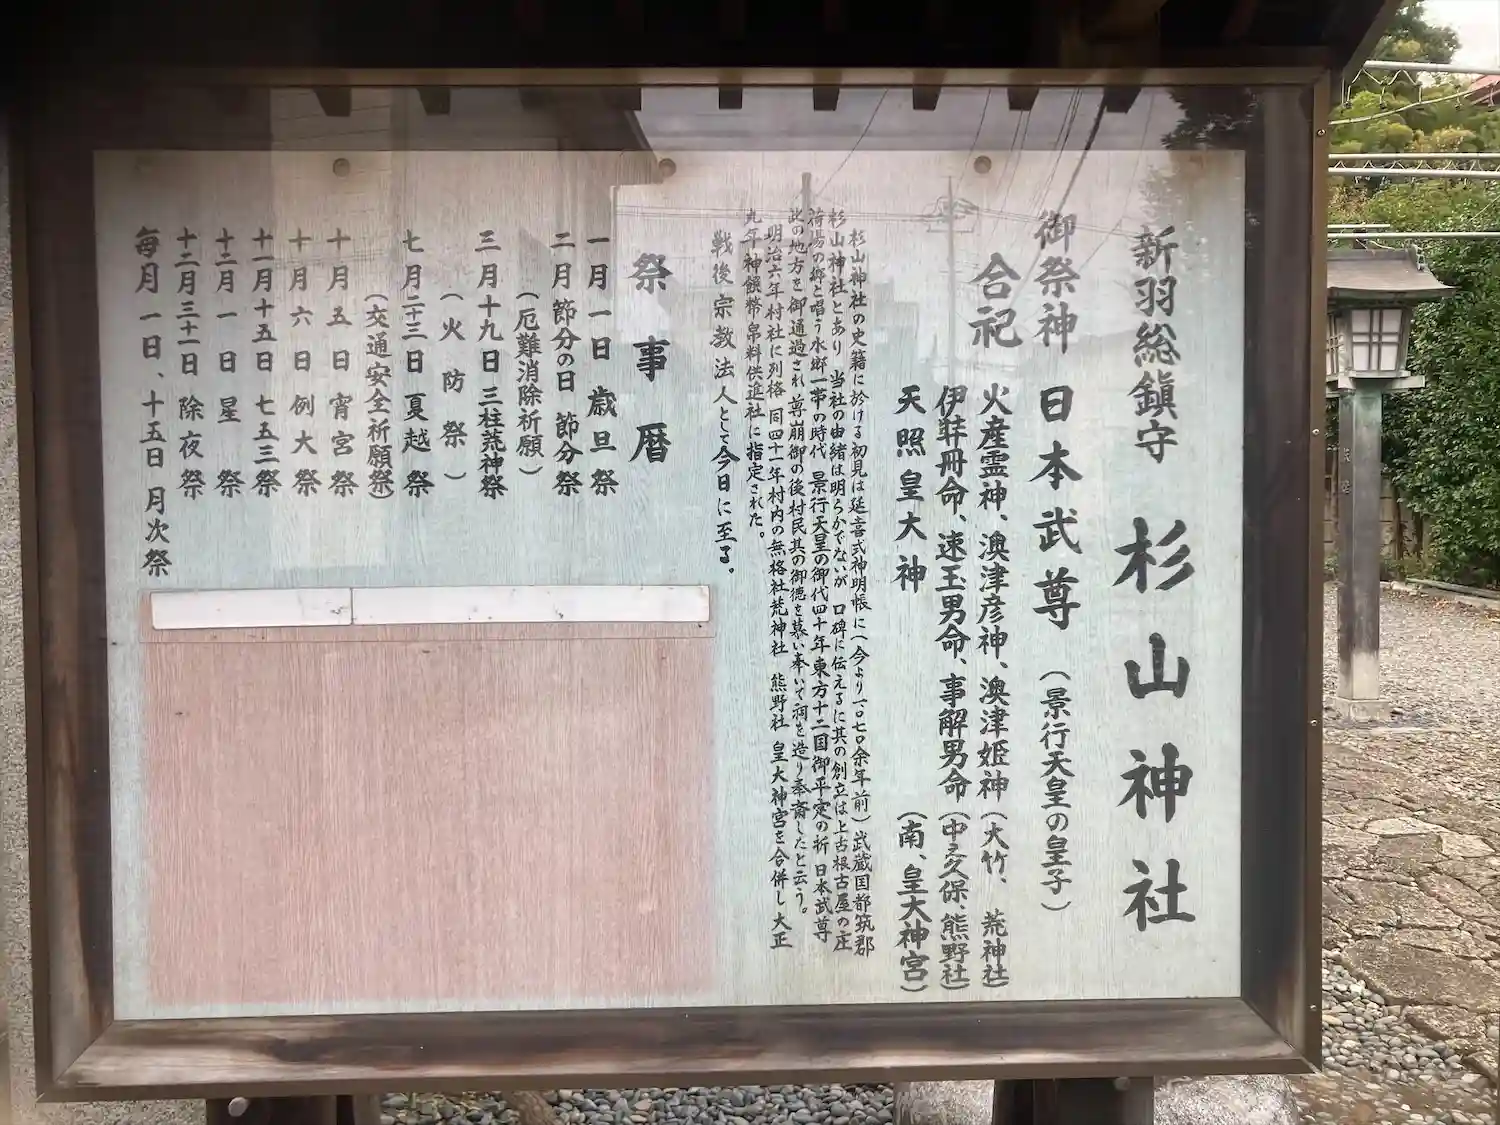 新羽総鎮守 杉山神社
御祭神 日本武尊 (景行天皇の皇子)
合祀
火産霊神、澳津彦神、澳津姫神 (大竹、荒神社)
伊弉冊命、速玉男命、事解男命 (中之久保、熊野社)
天照皇大神 (南、皇大神宮)
杉山神社の史籍に於ける初見は延喜式神明帳に(今より一〇七〇余年前)武蔵国都筑郡
杉山神社とあり 当社の由緒は明らかでないが 口碑に伝えるに其の創立は上古根古屋の庄
荷場の郷と唱う水郷一帯の時代 景行天皇の御代四十年東方十二国御平定の祈 日本武尊
此の地方を御通過され 尊崩御の後村民其の御徳を慕い奉いて祠を造り奉斎したと云う。
明治六年村社に列格 同四十一年村内の無格社荒神社 熊野社 皇大神宮を合併し大正
九年神饌幣帛料供進社に指定された。
戦後宗教法人として今日に至る。
祭事暦
一月一日 歳旦祭
二月節分の日 節分祭
(厄難消除祈願)
三月十九日 三柱荒神祭
(火防祭)
七月二十三日 夏越祭
(交通安全祈願祭)
十月五日 宵宮祭
十月六日 例大祭
十一月十五日 七五三祭
十二月一日 星祭
十二月三十一日 除夜祭
毎月一日、十五日 月次祭